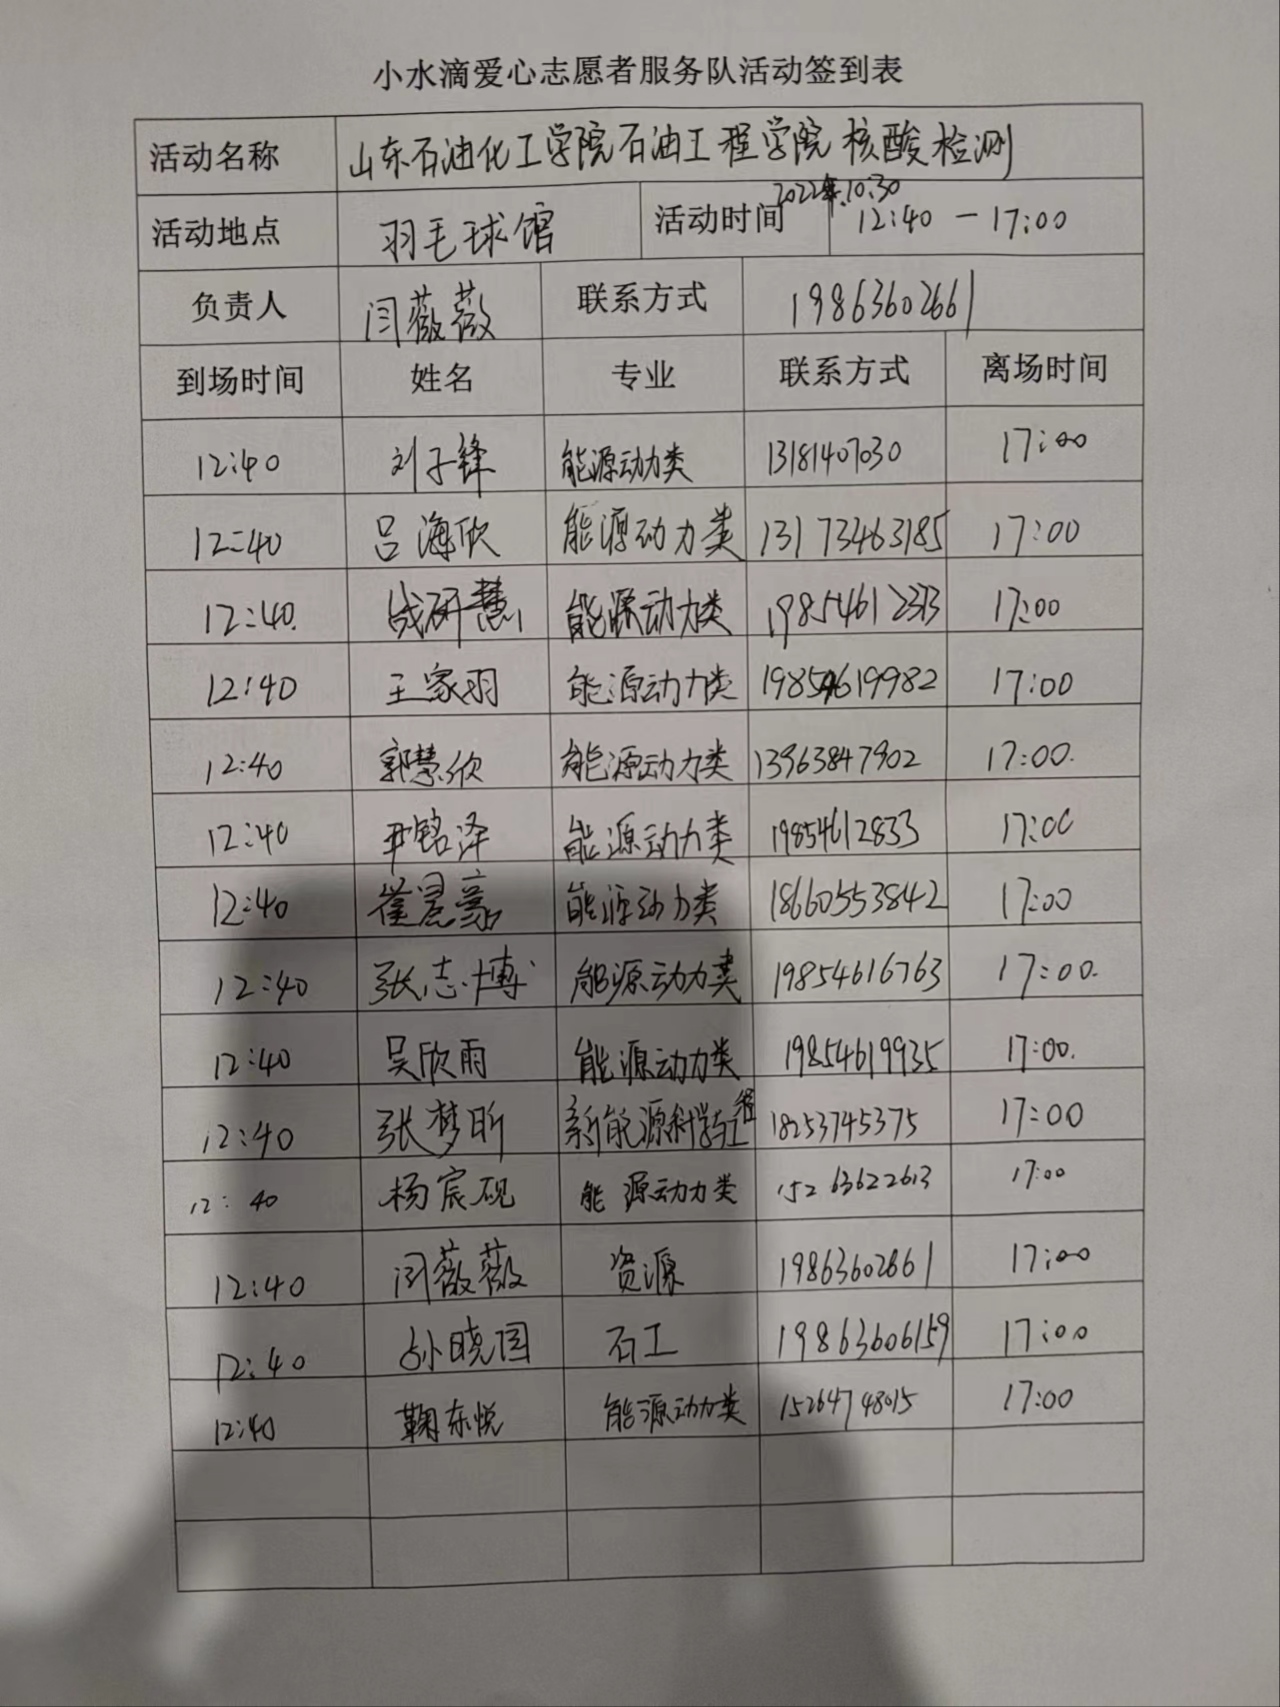 小水滴爱心志愿者服务队活动签到表
活动名称 山东石油化工学院石油工程学院核酸检测
活动地点 羽毛球馆 活动时间 2022年.10.30 12:40 - 17:00
负责人 闫薇薇 联系方式 19863602661
到场时间 姓名 专业 联系方式 离场时间
12:40 刘子锋 能源动力类 13181407030 17:00
12:40 吕海欣 能源动力类 13173463185 17:00
12:40. 战研慧 能源动力类 19854612313 17:00
12:40 王家羽 能源动力类 19854619982 17:00
12:40 郭慧欣 能源动力类 13963847902 17:00.
12:40 尹铭泽 能源动力类 19854612833 17:00
12:40 崔 能源动力类 18660553842 17:00
12:40 张志博 能源动力类 19854616763 17:00.
12:40 吴欣雨 能源动力类 19854619935 17:00.
12:40 张梦昕 新能源科学与工程 18253745375 17:00
12:40 杨宸砚 能源动力类 15263622613 17:00
12:40 闫薇薇 资源 19863602661 17:00
12:40 孙晓国 石工 19863606159 17:00
12:40 鞠东悦 能源动力类 15264748015 17:00